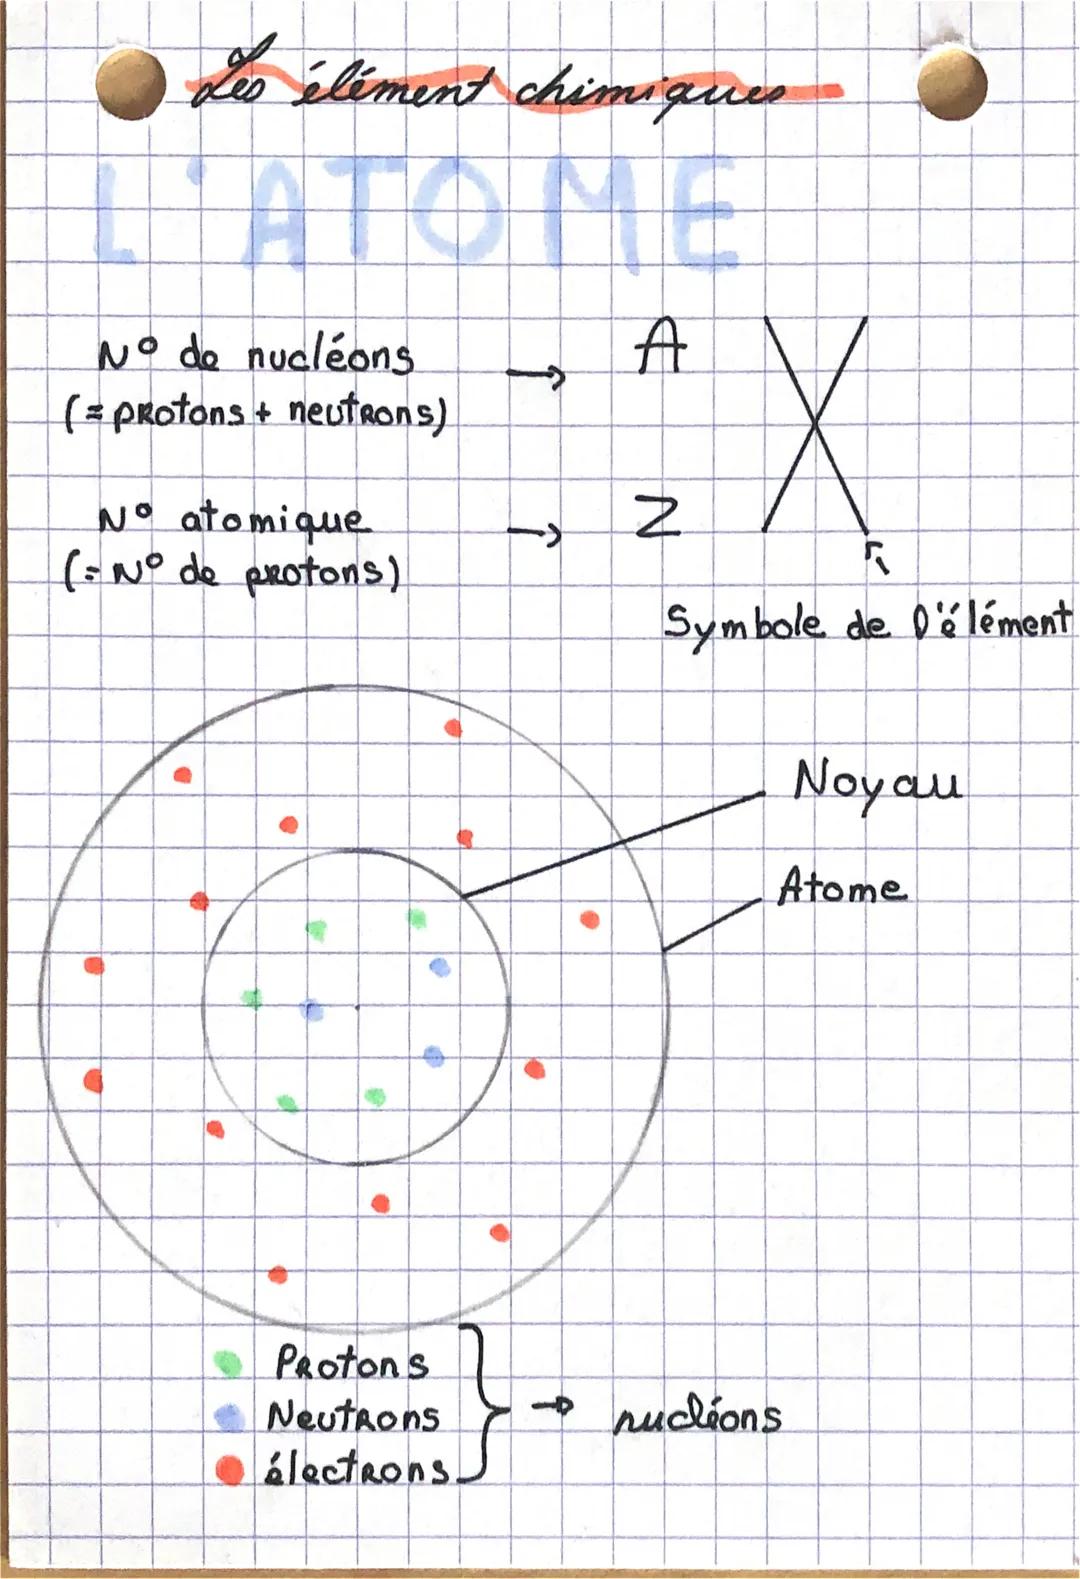 Les élément chimiques
L'ATOME
N° de nucléons → A X
(= protons + neutrons)
N° atomique → Z
(= N° de protons)
Symbole de l'élément
Noyau
Atome
Protons
Neutrons
électrons
→ nucléons